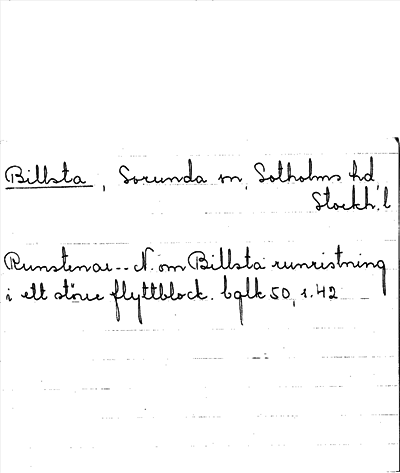 Billsta, Sorunda sn, Sotholms hd,
Stockh. l
Runstenar -- N. om Billsta runristning
i ett större flyttblock. bglk 50, s. 42